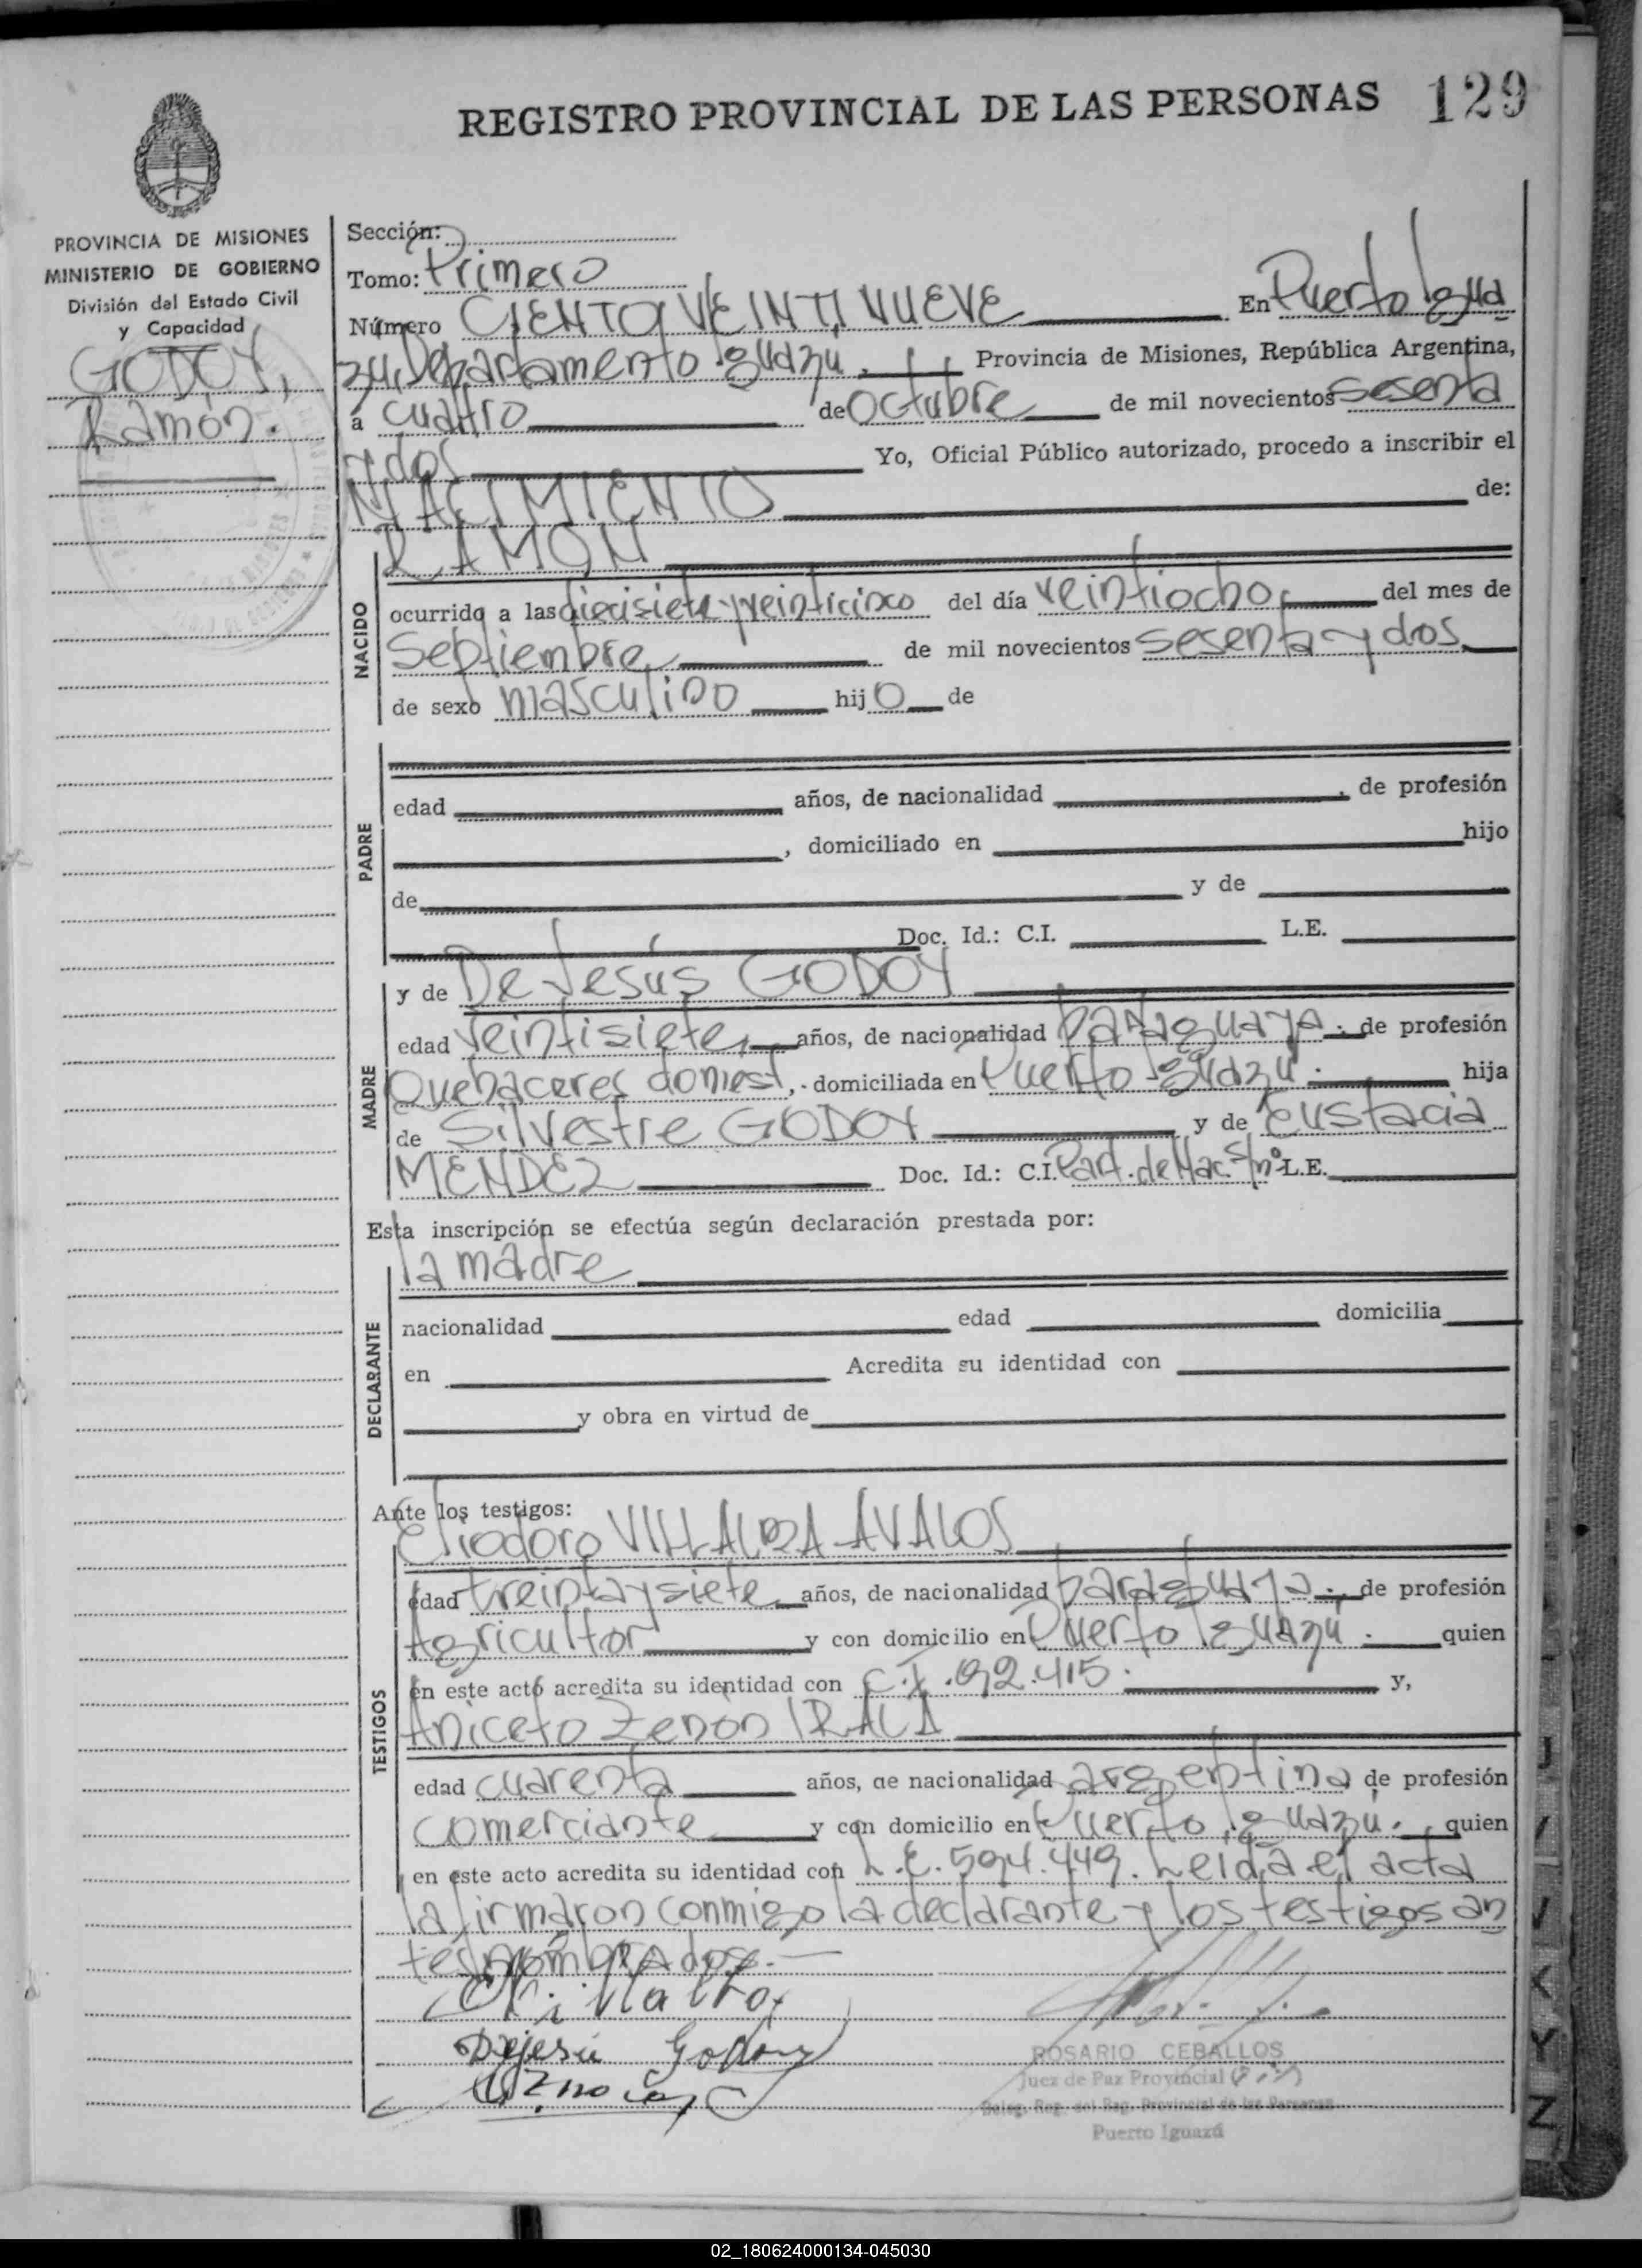 REGISTRO PROVINCIAL DE LAS PERSONAS 129
PROVINCIA DE MISIONES
MINISTERIO DE GOBIERNO
División del Estado Civil
y Capacidad
GODOY,
Ramón.
Sección:
Tomo: Primero
Número CIENTO VEINTINUEVE En Puerto Igua
zú, Departamento Iguazú, Provincia de Misiones, República Argentina,
a cuatro de Octubre de mil novecientos sesenta
y dos Yo, Oficial Público autorizado, procedo a inscribir el
NACIMIENTO de:
RAMÓN
NACIDO
ocurrido a las diecisiete y veinticinco del día veintiocho del mes de
Septiembre de mil novecientos sesenta y dos
de sexo masculino hijo de
PADRE
edad años, de nacionalidad , de profesión
, domiciliado en hijo
de y de
Doc. Id.: C.I. L.E.
MADRE
y de De Jesús GODOY
edad veintisiete, años, de nacionalidad paraguaya. de profesión
Quehaceres domést, domiciliada en Puerto Iguazú. hija
de Silvestre GODOY y de Eustacia
MENDEZ Doc. Id.: C.I. Part. de Nac. S/nº L.E.
Esta inscripción se efectúa según declaración prestada por:
la madre
DECLARANTE
nacionalidad edad domicilia
en Acredita su identidad con
y obra en virtud de
Ante los testigos:
Eliodoro VILLALBA AVALOS
TESTIGOS
edad treinta y siete años, de nacionalidad paraguaya. de profesión
Agricultor y con domicilio en Puerto Iguazú. quien
en este acto acredita su identidad con C.I. 092.415. y,
Aniceto Zenón IRALA
edad cuarenta años, de nacionalidad argentina de profesión
comerciante y con domicilio en Puerto Iguazú. quien
en este acto acredita su identidad con L.E. 594.449. Leida el acta
la firmaron conmigo la declarante y los testigos an
tes nombrados.
Villalba
Dejesú Godoy
ROSARIO CEBALLOS
Juez de Paz Provincial
Deleg. Reg. del Reg. Provincial de las Personas
Puerto Iguazú
J
V
X
Y
Z
02_180624000134-045030